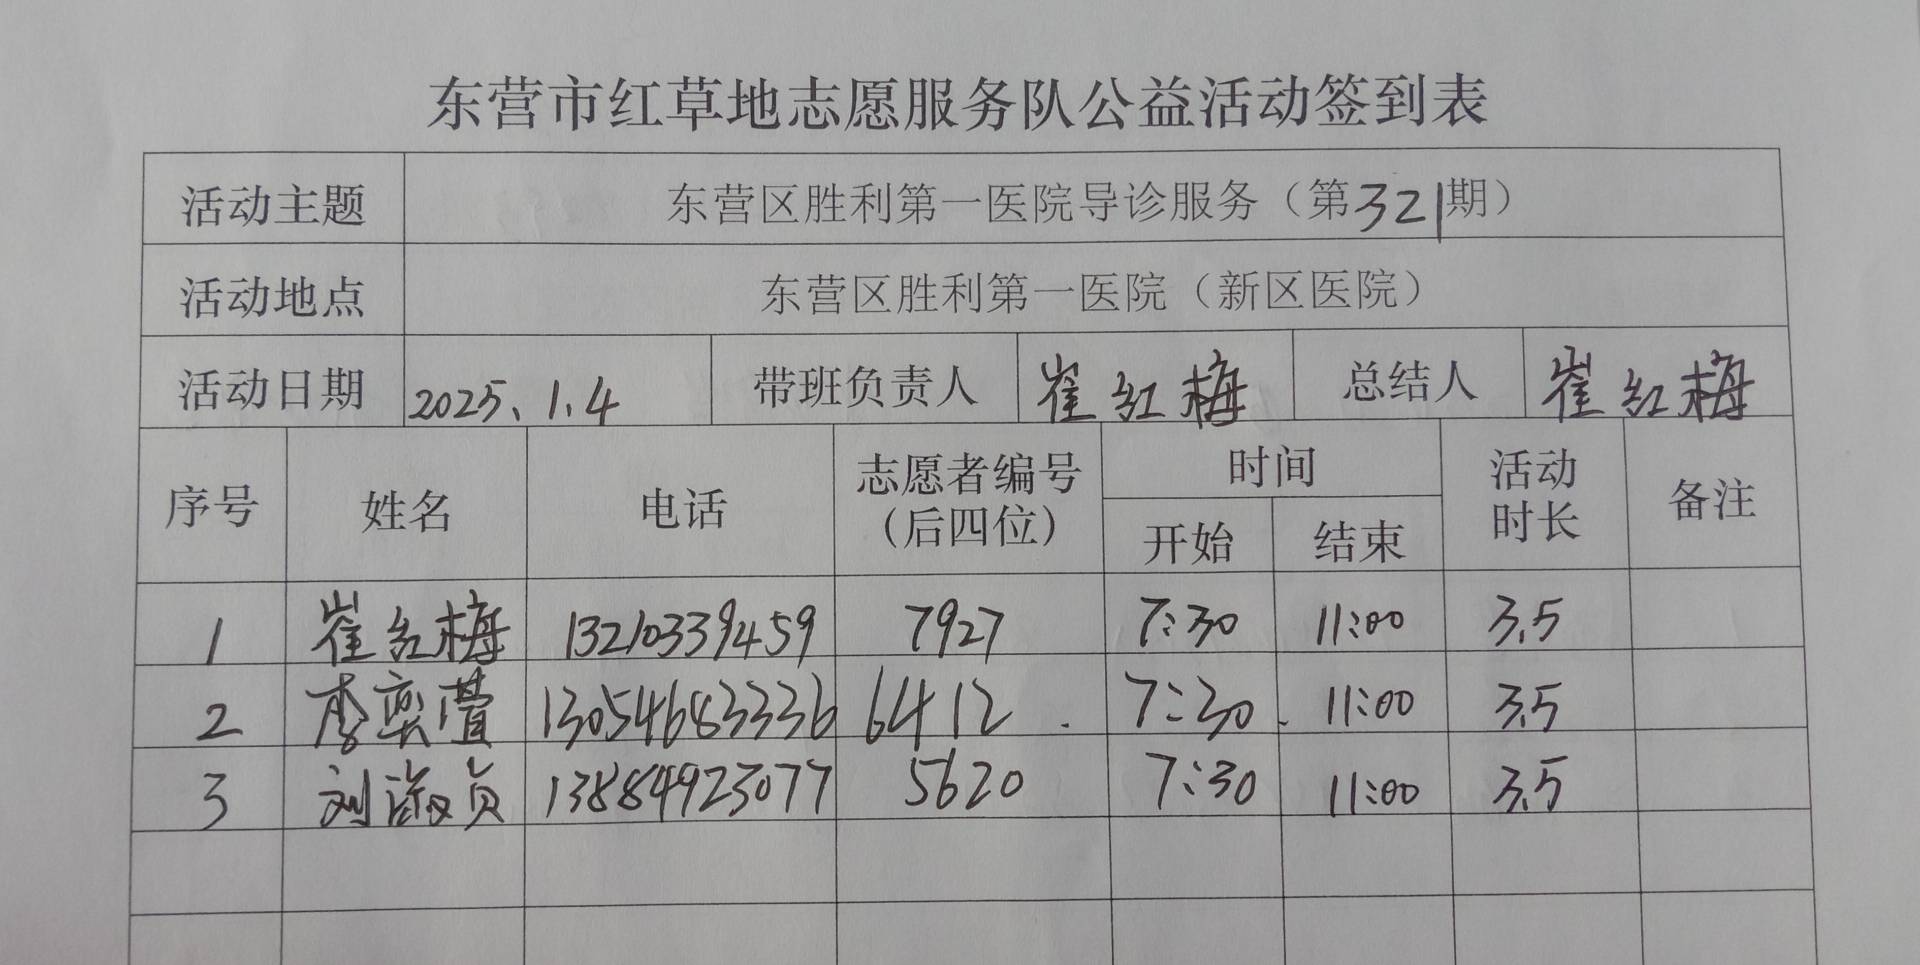 东营市红草地志愿服务队公益活动签到表
活动主题 东营区胜利第一医院导诊服务（第321期）
活动地点 东营区胜利第一医院（新区医院）
活动日期 2025、1.4 带班负责人 崔红梅 总结人 崔红梅
序号 姓名 电话 志愿者编号（后四位） 时间 开始 结束 活动时长 备注
1 崔红梅 13210339459 7927 7:30 11:00 3.5
2 李 13054683336 6412 7:30 11:00 3.5
3 刘淑贞 13884923077 5620 7:30 11:00 3.5